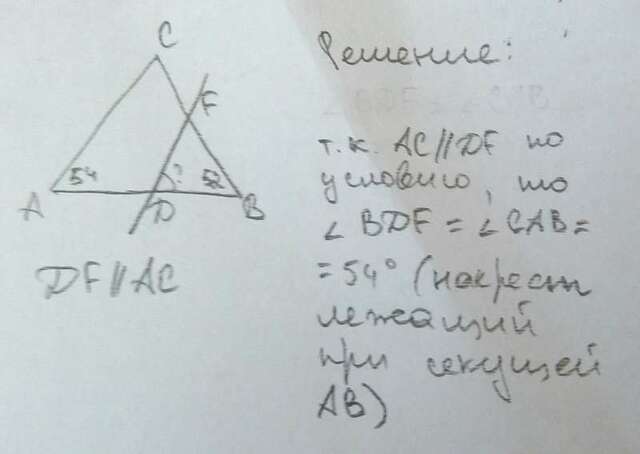 C
F
54
?
52
A
D
B
DF // AC
Решение:
т.к. AC // DF по
условию, то
∠ BDF = ∠ CAB =
= 54° (накрест
лежащий
при секущей
AB)